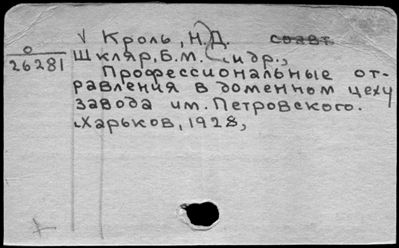 √ Кроль, Н.Д. соавт.
о
26281
Шкляр, Б.М. идр.,
Профессиональные от-
равления в доменном цеху
завода им. Петровского.
Харьков, 1928,